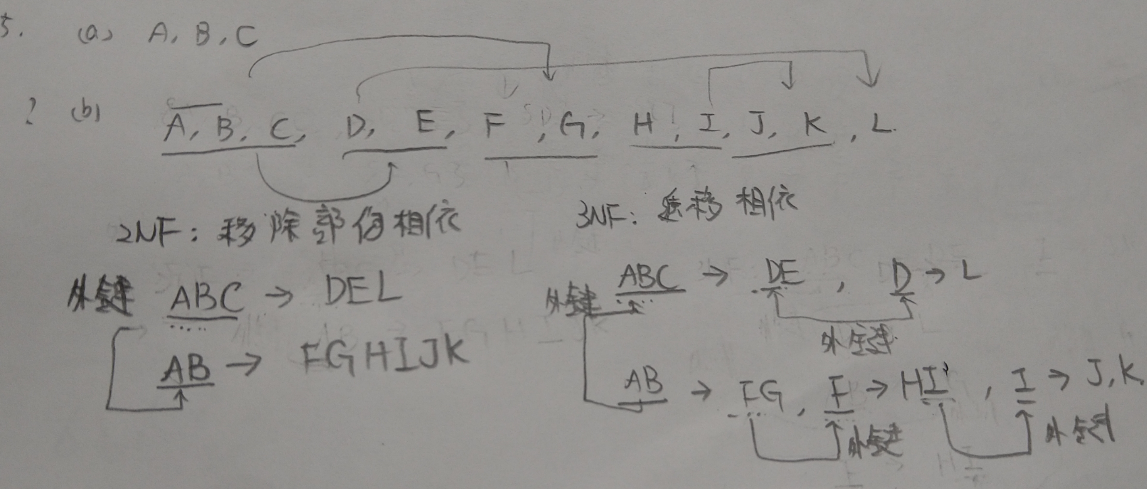 5. (a) A, B, C
? (b) A, B, C, D, E, F, G, H, I, J, K, L.
2NF: 移除部份相依
3NF: 移相依
外鍵 ABC → DEL
AB → FGHIJK
外鍵 ABC → DE, D → L
外鍵
AB → FG, F → HI, I → J, K
外鍵 外鍵